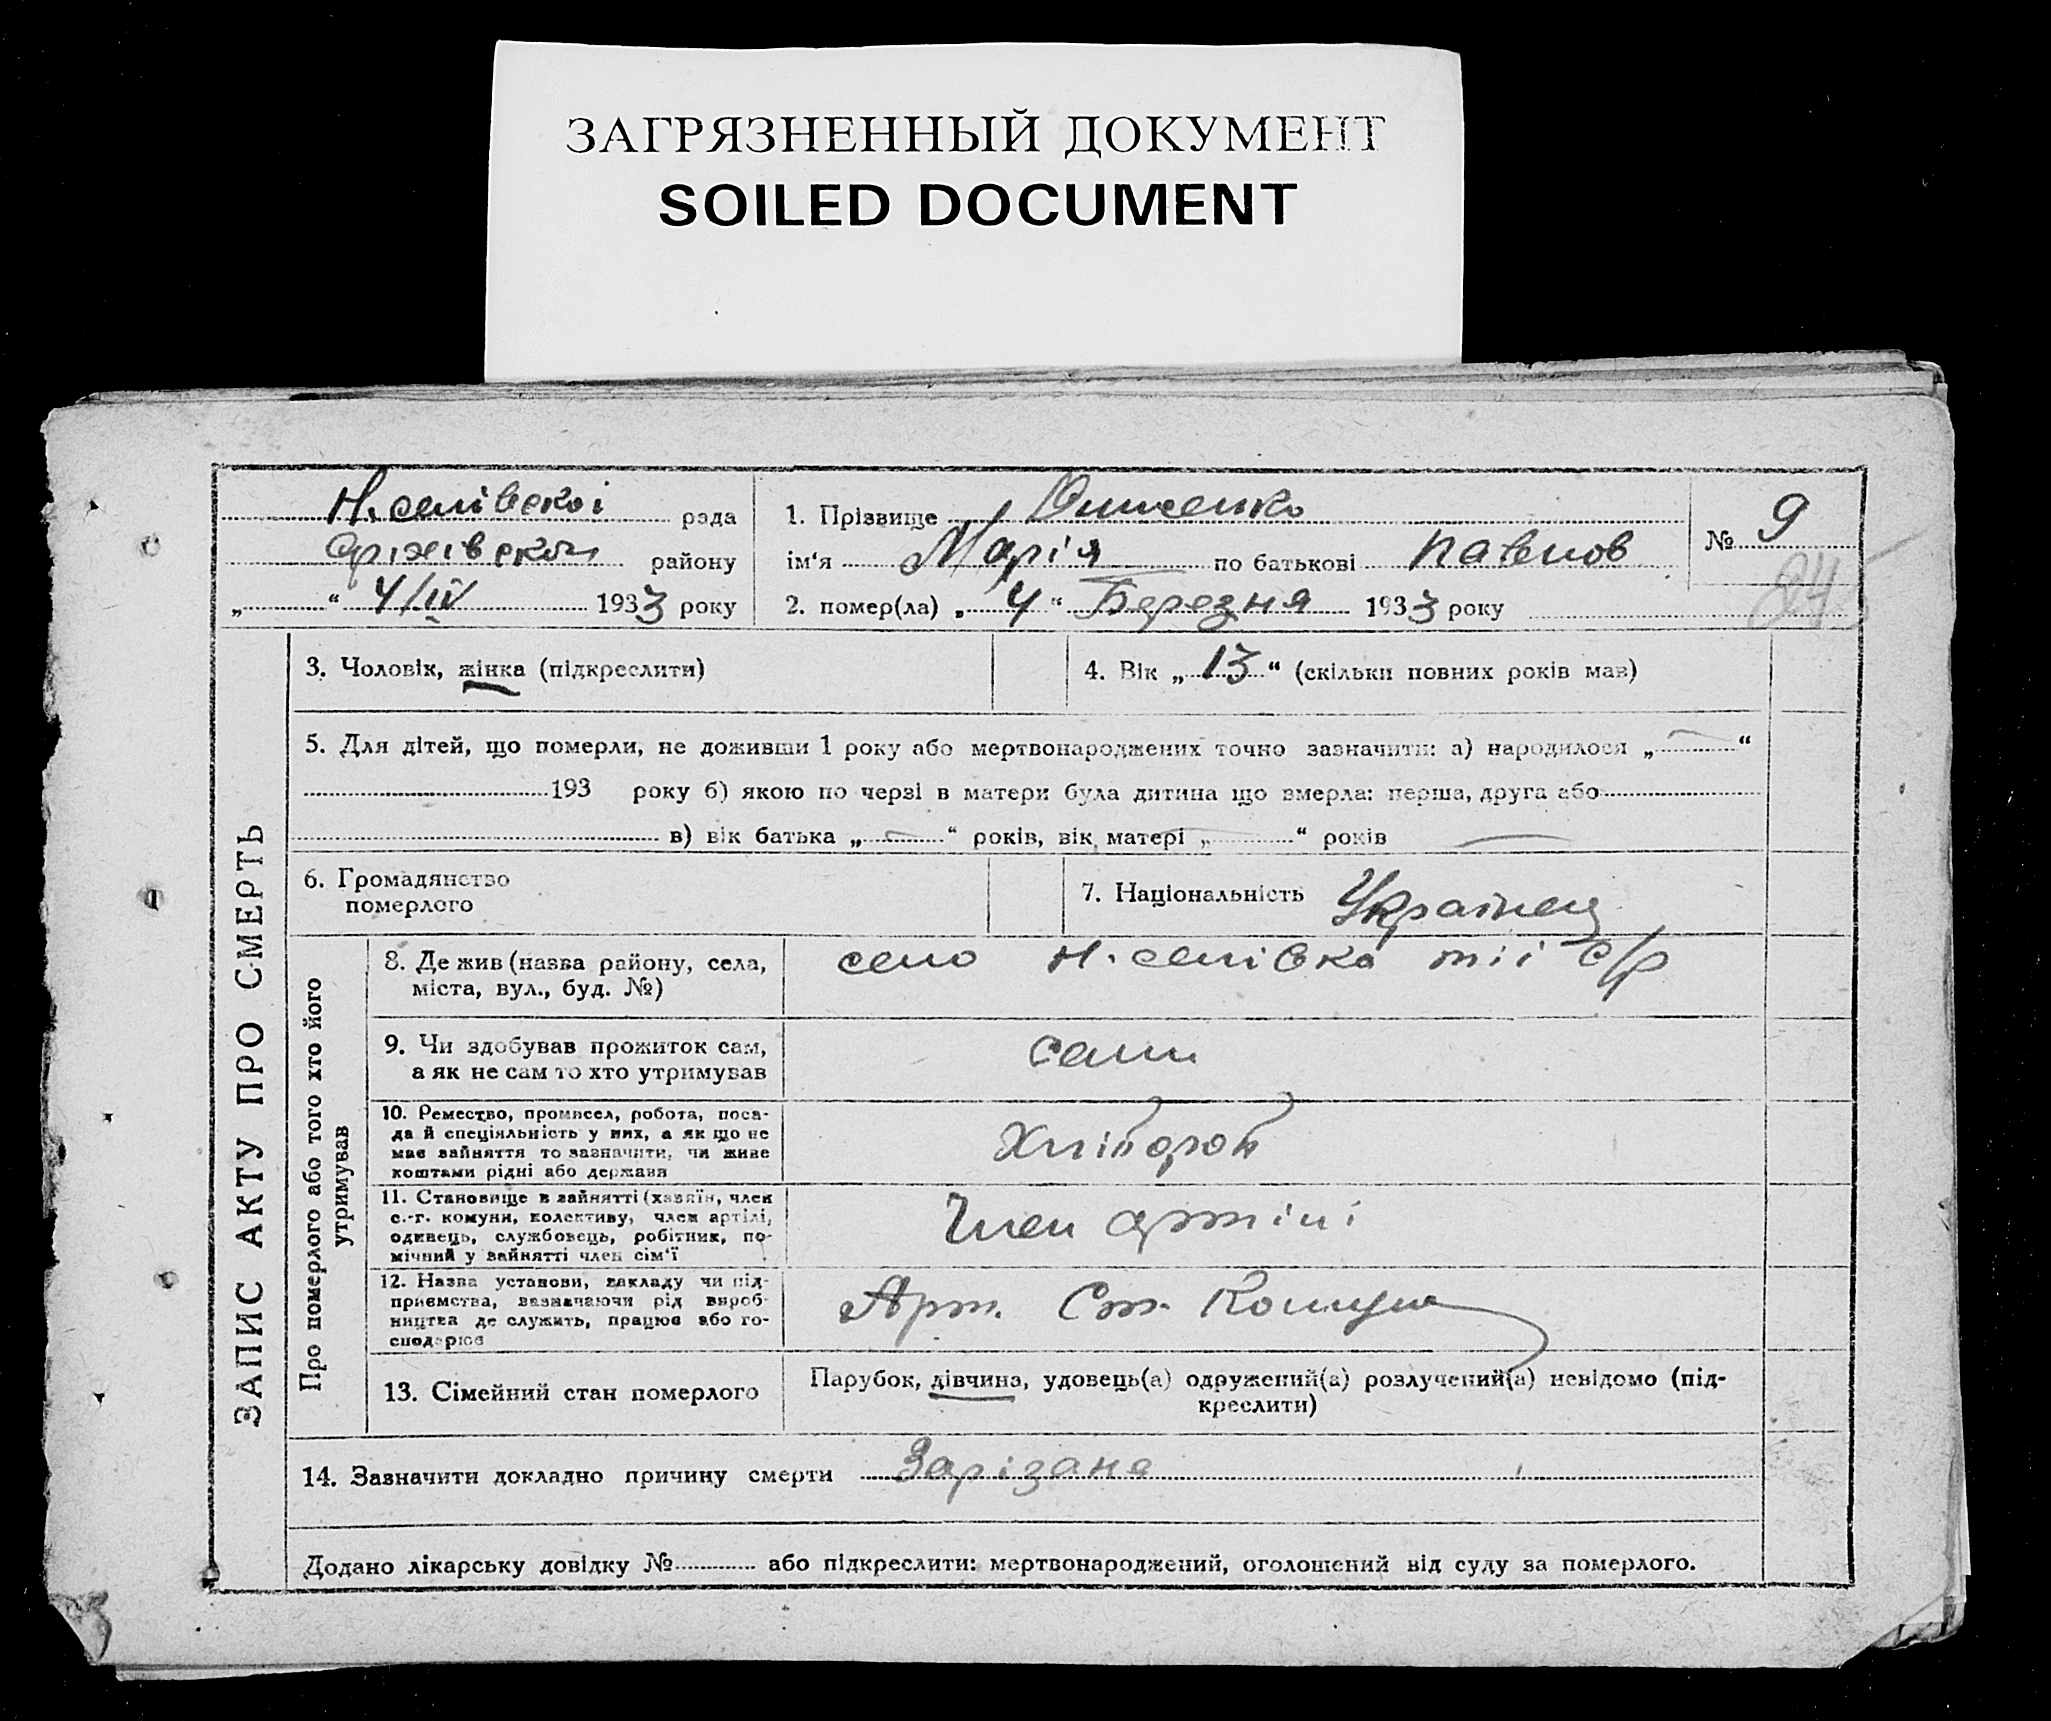 ЗАГРЯЗНЕННЫЙ ДОКУМЕНТ
SOILED DOCUMENT
Н.селівскої рада
Оріхівської району
„ “ 4/IV 1933 року
1. Прізвище Онищенко
ім‘я Марія по батькові Павлов
2. помер(ла) „ 4 “ Березня 1933 року
№ 9
245
ЗАПИС АКТУ ПРО СМЕРТЬ
3. Чоловік, жінка (підкреслити)
4. Вік „ 13 “ (скільки повних років мав)
5. Для дітей, що померли, не доживши 1 року або мертвонароджених точно зазначити: а) народилося „ — “
193 року б) якою по черзі в матери була дитина що вмерла: перша, друга або
в) вік батька „ — “ років, вік матері „ — “ років —
6. Громадянство
померлого
7. Національність Українец
Про померлого або того хто його
утримував
8. Де жив (назва району, села,
міста, вул., буд. №)
село Н.селівка тії с/р
9. Чи здобував прожиток сам,
а як не сам то хто утримував
сами
10. Ремество, промисел, робота, поса-
да й спеціяльність у них, а як що не
має зайняття то зазначити, чи живе
коштами рідні або держави
Хлібороб
11. Становище в зайнятті (хазяїн, член
с.-г. комуни, колективу, член артілі,
одинець, службовець, робітник, по-
мічний у зайнятті член сім‘ї
Член артілі
12. Назва установи, закладу чи під-
приємства, зазначаючи рід вироб-
ництва де служить, працює або го-
сподарює
Арт. Ст. Комуна
13. Сімейний стан померлого
Парубок, дівчина, удовець(а) одружений(а) розлучений(а) невідомо (під-
креслити)
14. Зазначити докладно причину смерти Зарізана
Додано лікарську довідку № або підкреслити: мертвонароджений, оголошений від суду за померлого.